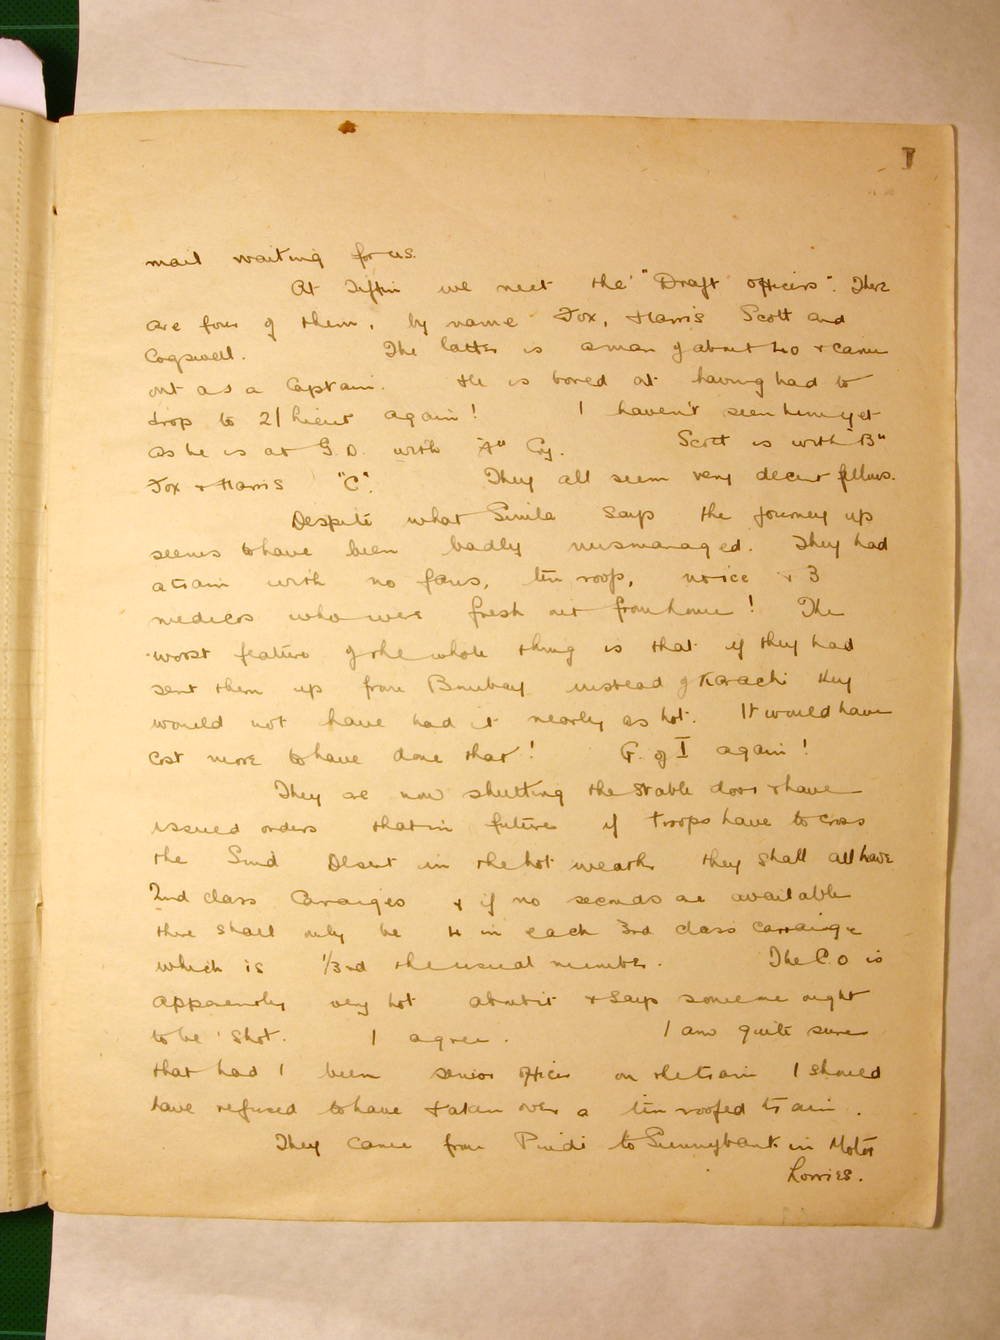 mail waiting for us.
At Tiffin we meet the "Draft officers". There
are four of them, by name Fox, Harris Scott and
Cogswell. The latter is a man of about 40 & came
out as a Captain. He is bored at having had to
drop to 2/Lieut again! I haven't seen him yet
as he is at G.D. with "A" Coy. Scott is with "B"
Fox & Harris "C". They all seem very decent fellows.
Despite what Simla says the journey up
seems to have been badly mismanaged. They had
a train with no fans, tin roofs, no ice & 3
medicos who were fresh out from home! The
worst feature of the whole thing is that if they had
sent them up from Bombay instead of Karachi they
would not have had it nearly as hot. It would have
cost more to have done that! G. of I again!
They are now shutting the stable door & have
issued orders that in future if troops have to cross
the Sind Desert in the hot weather they shall all have
2nd class Carraiges & if no seconds are available
there shall only be 4 in each 3rd class carraige
which is 1/3rd the usual number. The C.O is
apparently very hot about it & says someone ought
to be shot. I agree. I am quite sure
that had I been senior officer on the train I should
have refused to have taken over a tin roofed train.
They came from Pindi to Sunnybank in Motor
Lorries.